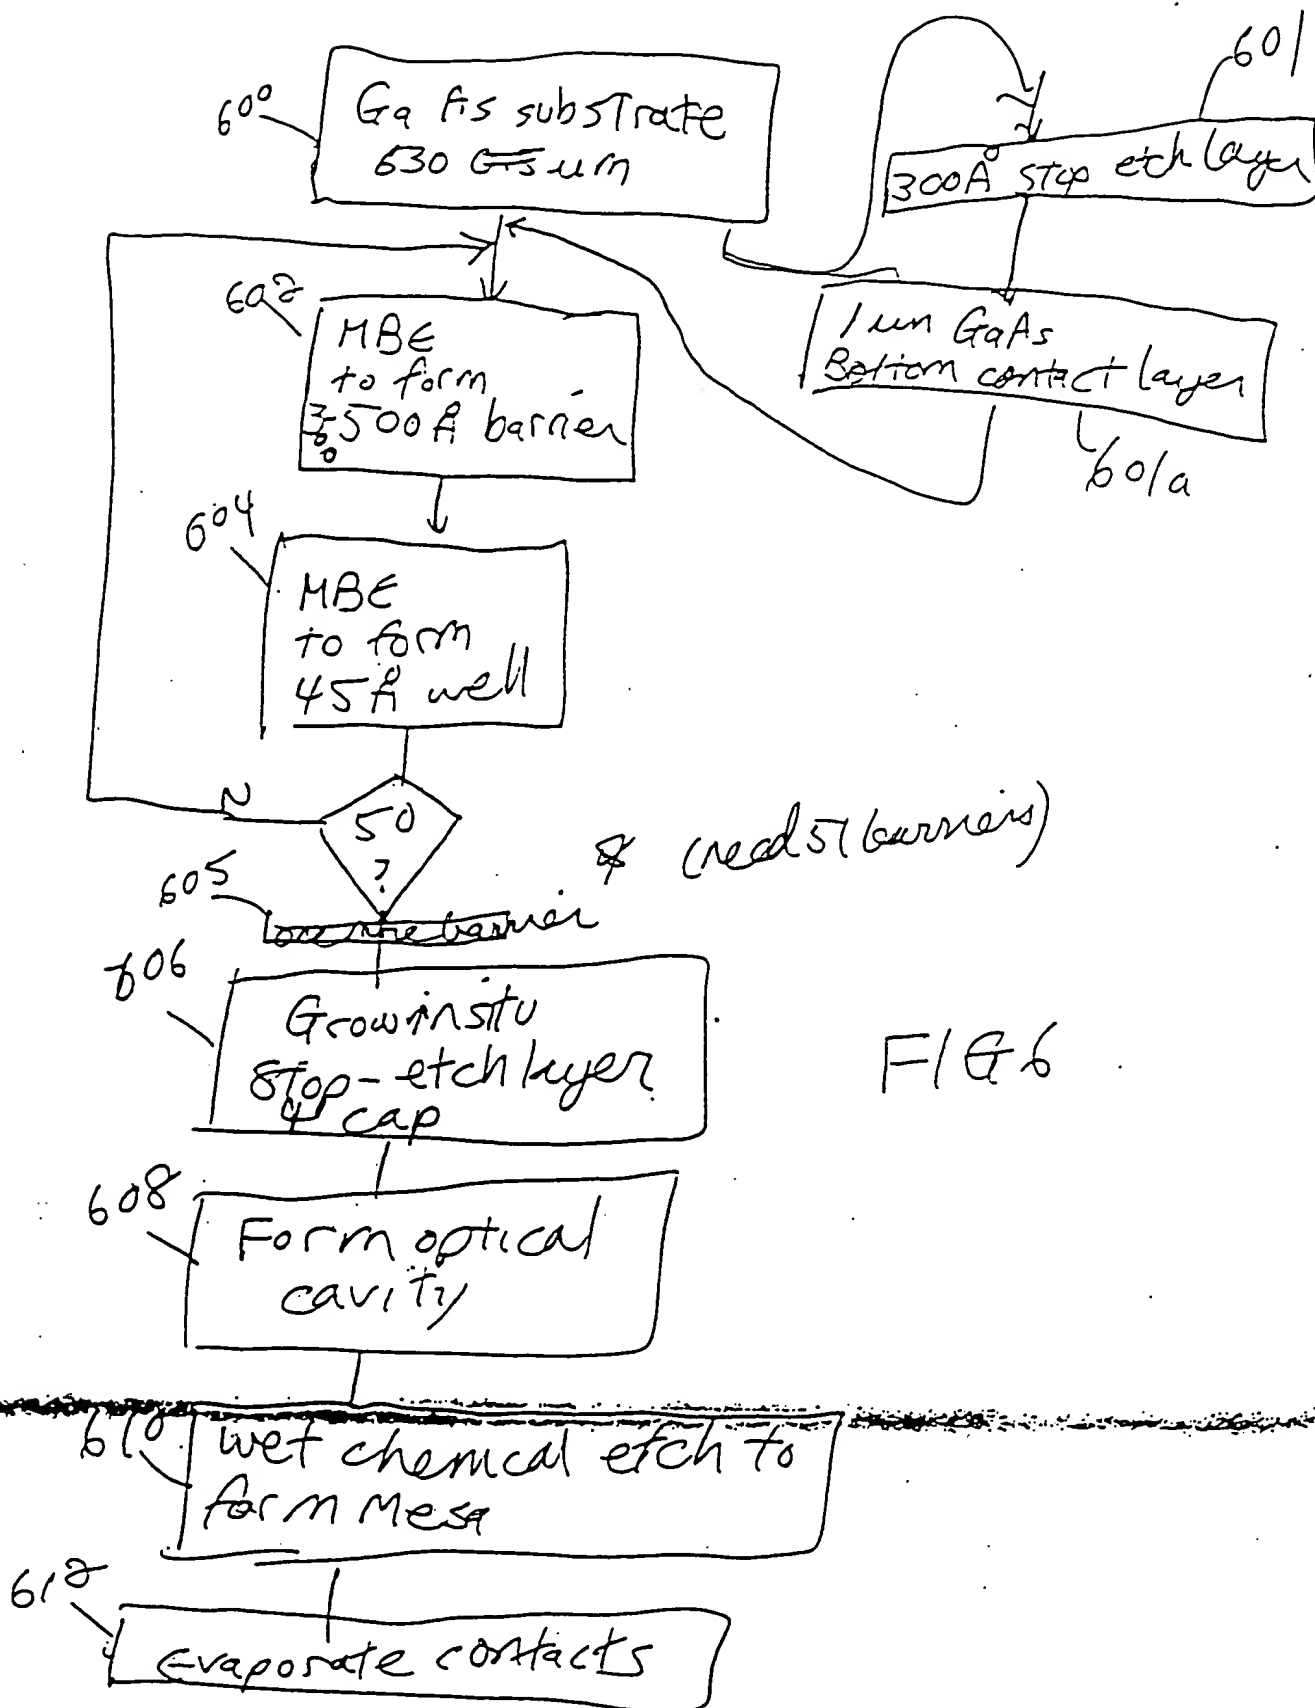 600
Ga As substrate
630 um
601
300Å stop etch layer
1 um GaAs
Bottom contact layer
601a
602
MBE
to form
500Å barrier
604
MBE
to form
45Å well
N
50
?
(need 51 barriers)
605
one more barrier
606
Grow insitu
Stop-etch layer
& cap
FIG 6
608
Form optical
cavity
610
wet chemical etch to
form Mesa
612
Evaporate contacts